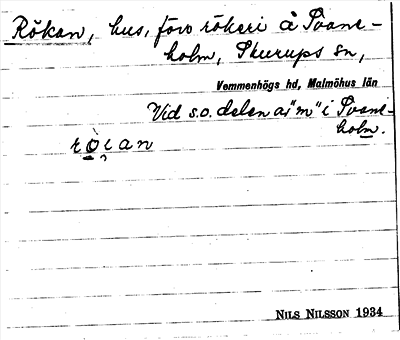 Rökan, hus, förv rökeri å Svane-
holm, Skurups sn,
Vemmenhögs hd, Malmöhus län
Vid s.o. delen av "m" i Svane-
holm.
NILS NILSSON 1934